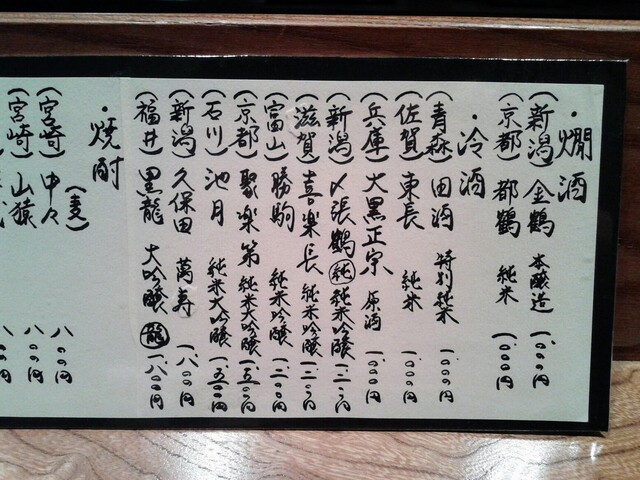 ・燗酒
(新潟) 金鶴 本醸造 一、〇〇〇円
(京都) 都鶴 純米 一、〇〇〇円
・冷酒
(青森) 田酒 特別純米 一、〇〇〇円
(佐賀) 東長 純米 一、〇〇〇円
(兵庫) 大黒正宗 原酒 一、〇〇〇円
(新潟) 〆張鶴 純 純米吟醸 一、二〇〇円
(滋賀) 喜楽長 純米吟醸 一、二〇〇円
(富山) 勝駒 純米吟醸 一、二〇〇円
(京都) 聚楽第 純米大吟醸 一、五〇〇円
(石川) 池月 純米大吟醸 一、五〇〇円
(新潟) 久保田 萬寿 一、八〇〇円
(福井) 黒龍 大吟醸 龍 一、八〇〇円
・焼酎
(麦)
(宮崎) 中々 八〇〇円
(宮崎) 山猿 八〇〇円
八〇〇円